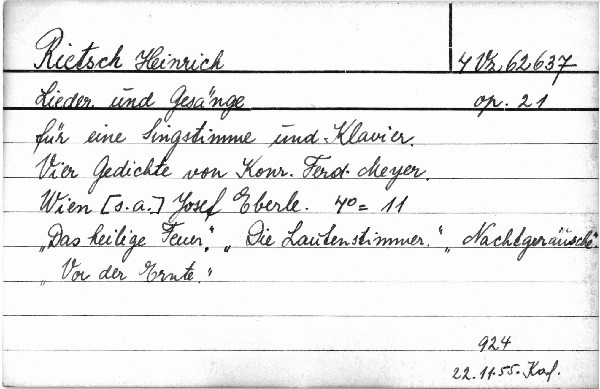 Rietsch Heinrich 4 Vz 62637
Lieder und Gesänge op. 21
für eine Singstimme und Klavier.
Vier Gedichte von Konr. Ferd. Meyer.
Wien [s.a.] Josef Eberle. 4º = 11
„Das heilige Feuer." „Die Lautenstimmer." „Nachtgeräusche"
„Vor der Ernte."
924
22.11.55. Kaf.